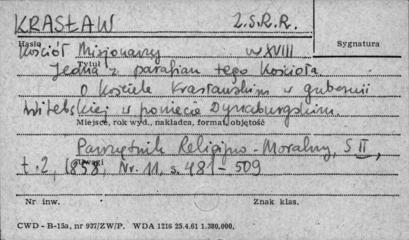 KRASŁAW Z.S.R.R.
Hasło
Kościół Misjonarzy w XVIII
Sygnatura
Tytuł
Jedna z parafian tego Kościoła
O Kościele Krasławskim w gubernii
Witebskiej w powiecie Dynaburgskim.
Miejsce, rok wyd., nakładca, format, objętość
Pamiętnik Religijno-Moralny, S II,
Uwagi
t. 2, 1858, Nr. 11, s. 481-509
Nr inw. Znak klas.
CWD - B-15a, nr 937/ZW/P. WDA 1216 25.4.61 1.380.000.